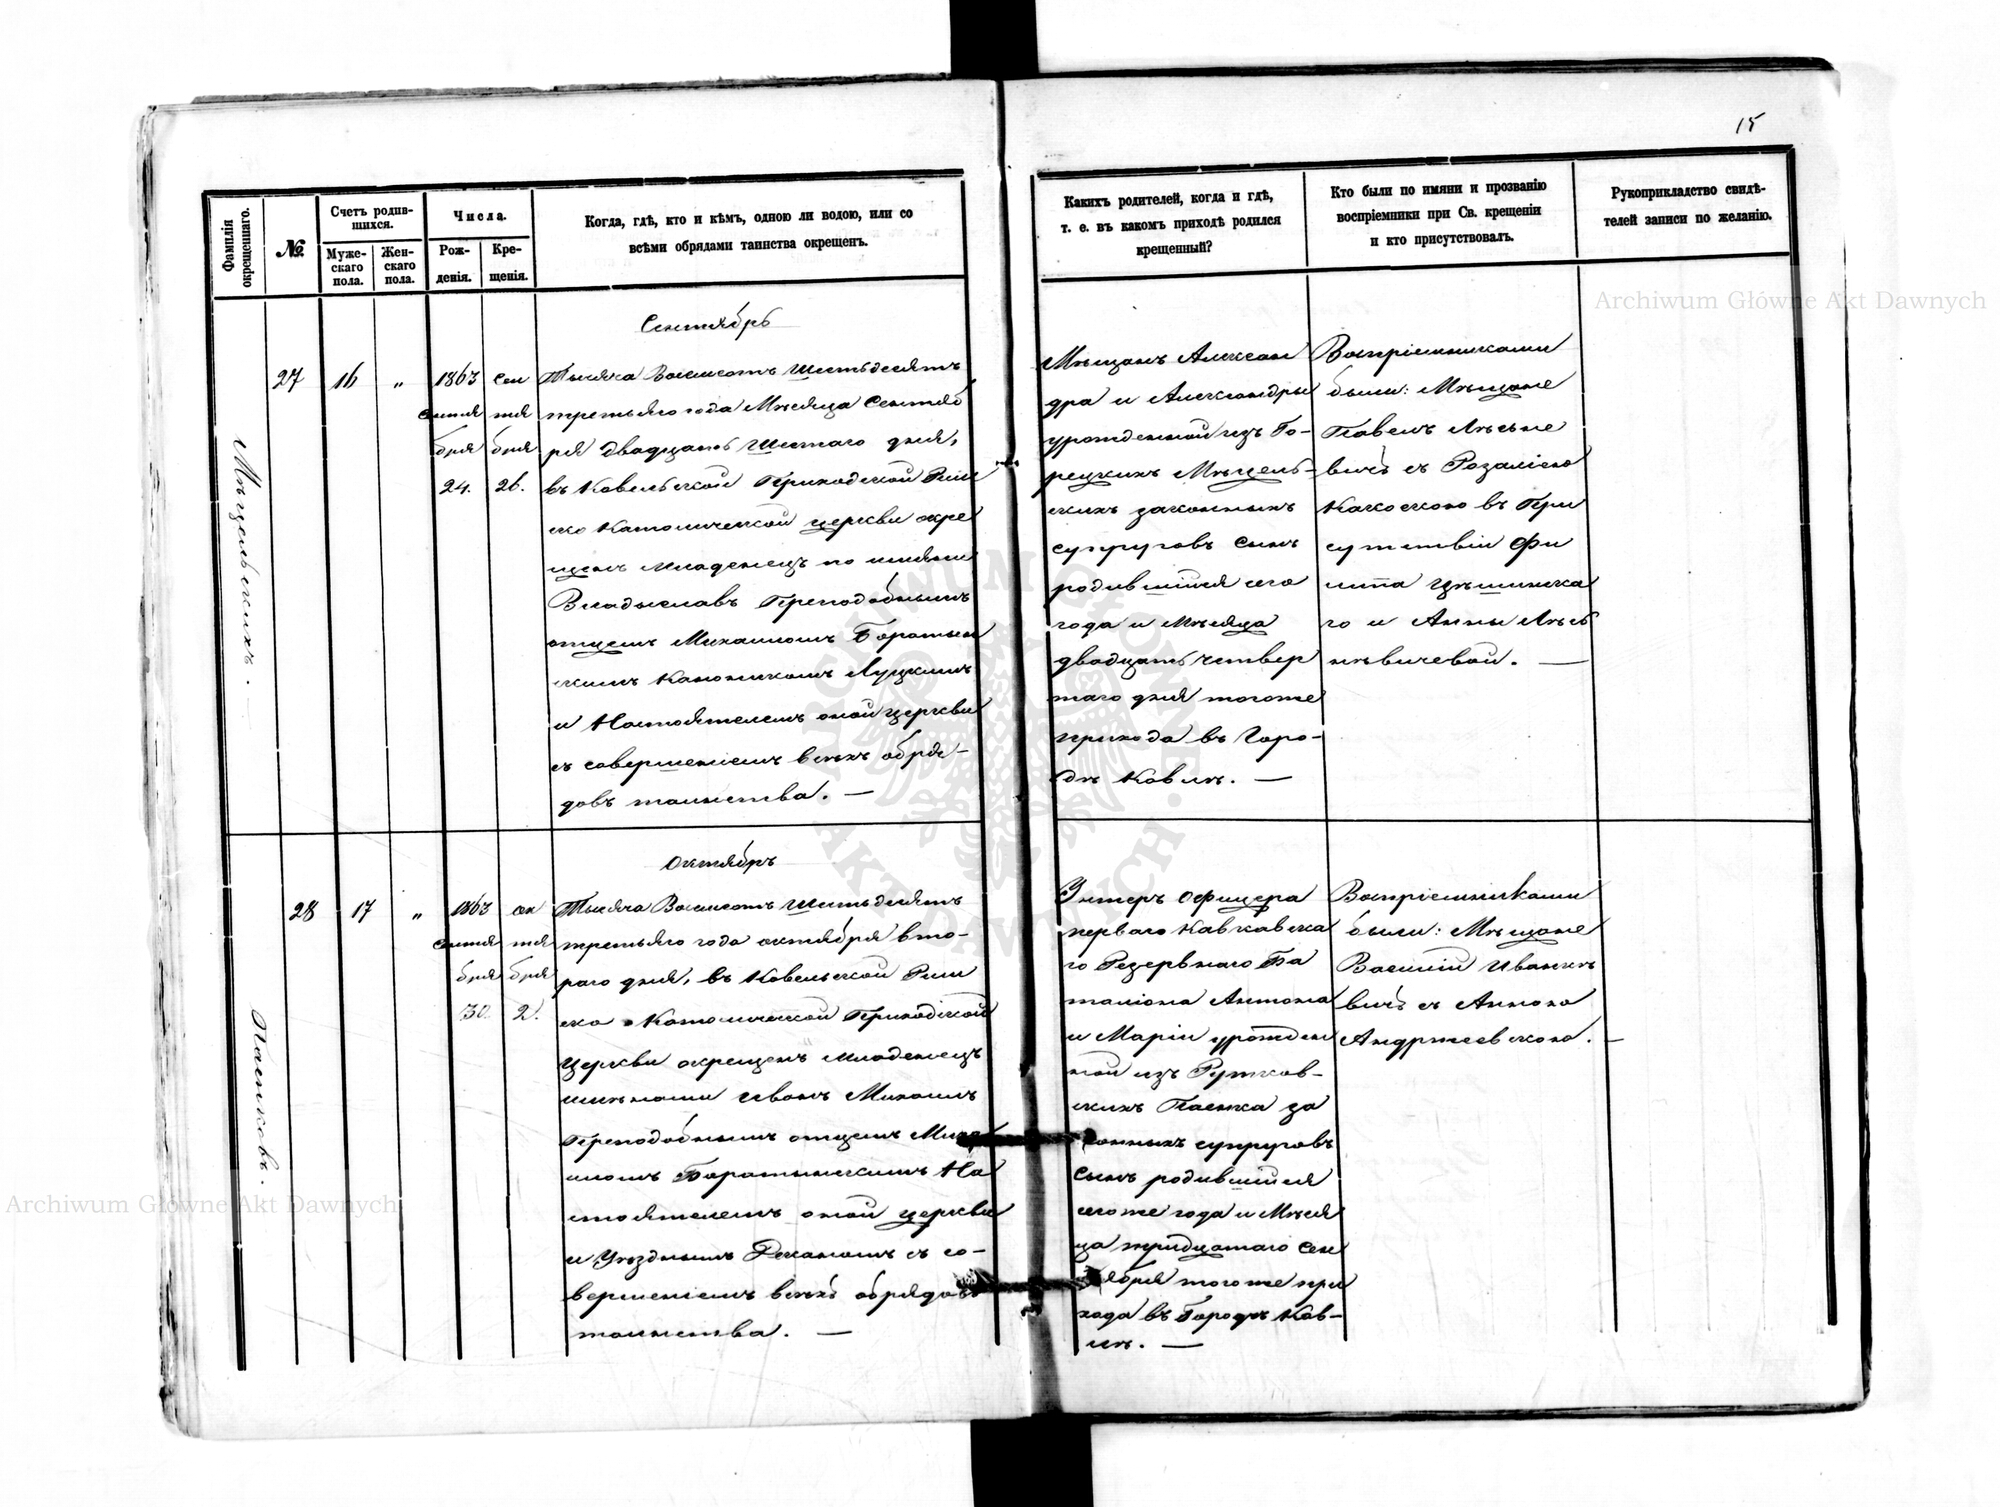 15
Фамилія окрещеннаго.
№
Счетъ родив-
шихся.
Муже-
скаго
пола.
Жен-
скаго
пола.
Числа.
Рож-
денія.
Кре-
щенія.
Когда, гдѣ, кто и кѣмъ, одною ли водою, или со
всѣми обрядами таинства окрещенъ.
Какихъ родителей, когда и гдѣ,
т. е. въ какомъ приходѣ родился
крещенный?
Кто были по имяни и прозванію
воспріемники при Св. крещеніи
и кто присутствовалъ.
Рукоприкладство свидѣ-
телей записи по желанію.
Мѣцельскихъ.
27
16
„
1863
Сентя
бря
24.
Сен
тя
бря
26.
Сентябрь
Тысяча Восемсотъ Шестьдесятъ
третьяго года Мѣсяца Сентяб
ря двадцать Шестаго дня,
въ Ковельской Приходской Рим
ско Католической церкви окре
щенъ младенецъ по имяни
Владыславъ Преподобнымъ
отцемъ Михаиломъ Баратын
скимъ Каноникомъ Луцкимъ
и Настоятелемъ оной церкви
съ совершеніемъ всѣхъ обря-
довъ таинства. —
Мѣщанъ Алексан
дра и Александры
урожденной изъ Го-
рецкихъ Мѣцель-
скихъ законныхъ
супруговъ сынъ
родившійся сего
года и Мѣсяца
двадцать четвер
таго дня тогоже
прихода въ Горо-
дѣ Ковлѣ. —
Воспріемниками
были: Мѣщане
Павелъ
вичъ съ Розаліею
въ При
сутствіи Фи
липа Цѣшинска
го и Анны Лѣсь
нѣвичевой. —
Паепковъ.
28
17
„
1863
Сентя
бря
30.
Ок
тя
бря
2.
Октябрь
Тысяча Восемсотъ Шестьдесятъ
третьяго года октября вто-
раго дня, въ Ковельской Рим
ско Католической Приходской
Церкви окрещенъ младенецъ
имѣнами Иванъ Михаилъ
Преподобнымъ отцемъ Миха
иломъ Баратынскимъ На
стоятелемъ оной церкви
и Уѣзднымъ Деканомъ съ со-
вершеніемъ всѣхъ обрядовъ
таинства. —
Унтеръ Офицера
перваго Кавказска
го Резервнаго Ба
таліона Антона
и Маріи урожден
ной изъ Рутков-
скихъ за
конныхъ супруговъ
сынъ родившійся
сегоже года и Мѣся
ца тридцатаго Сен
тября тогоже при
хода въ Городѣ Ков-
лѣ. —
Воспріемниками
были: Мѣщане
Василій Иванкѣ
вичъ съ Анною
Андржеевскою. —
Archiwum Główne Akt Dawnych
Archiwum Główne Akt Dawnych
ARCHIWUM GŁÓWNE AKT DAWNYCH